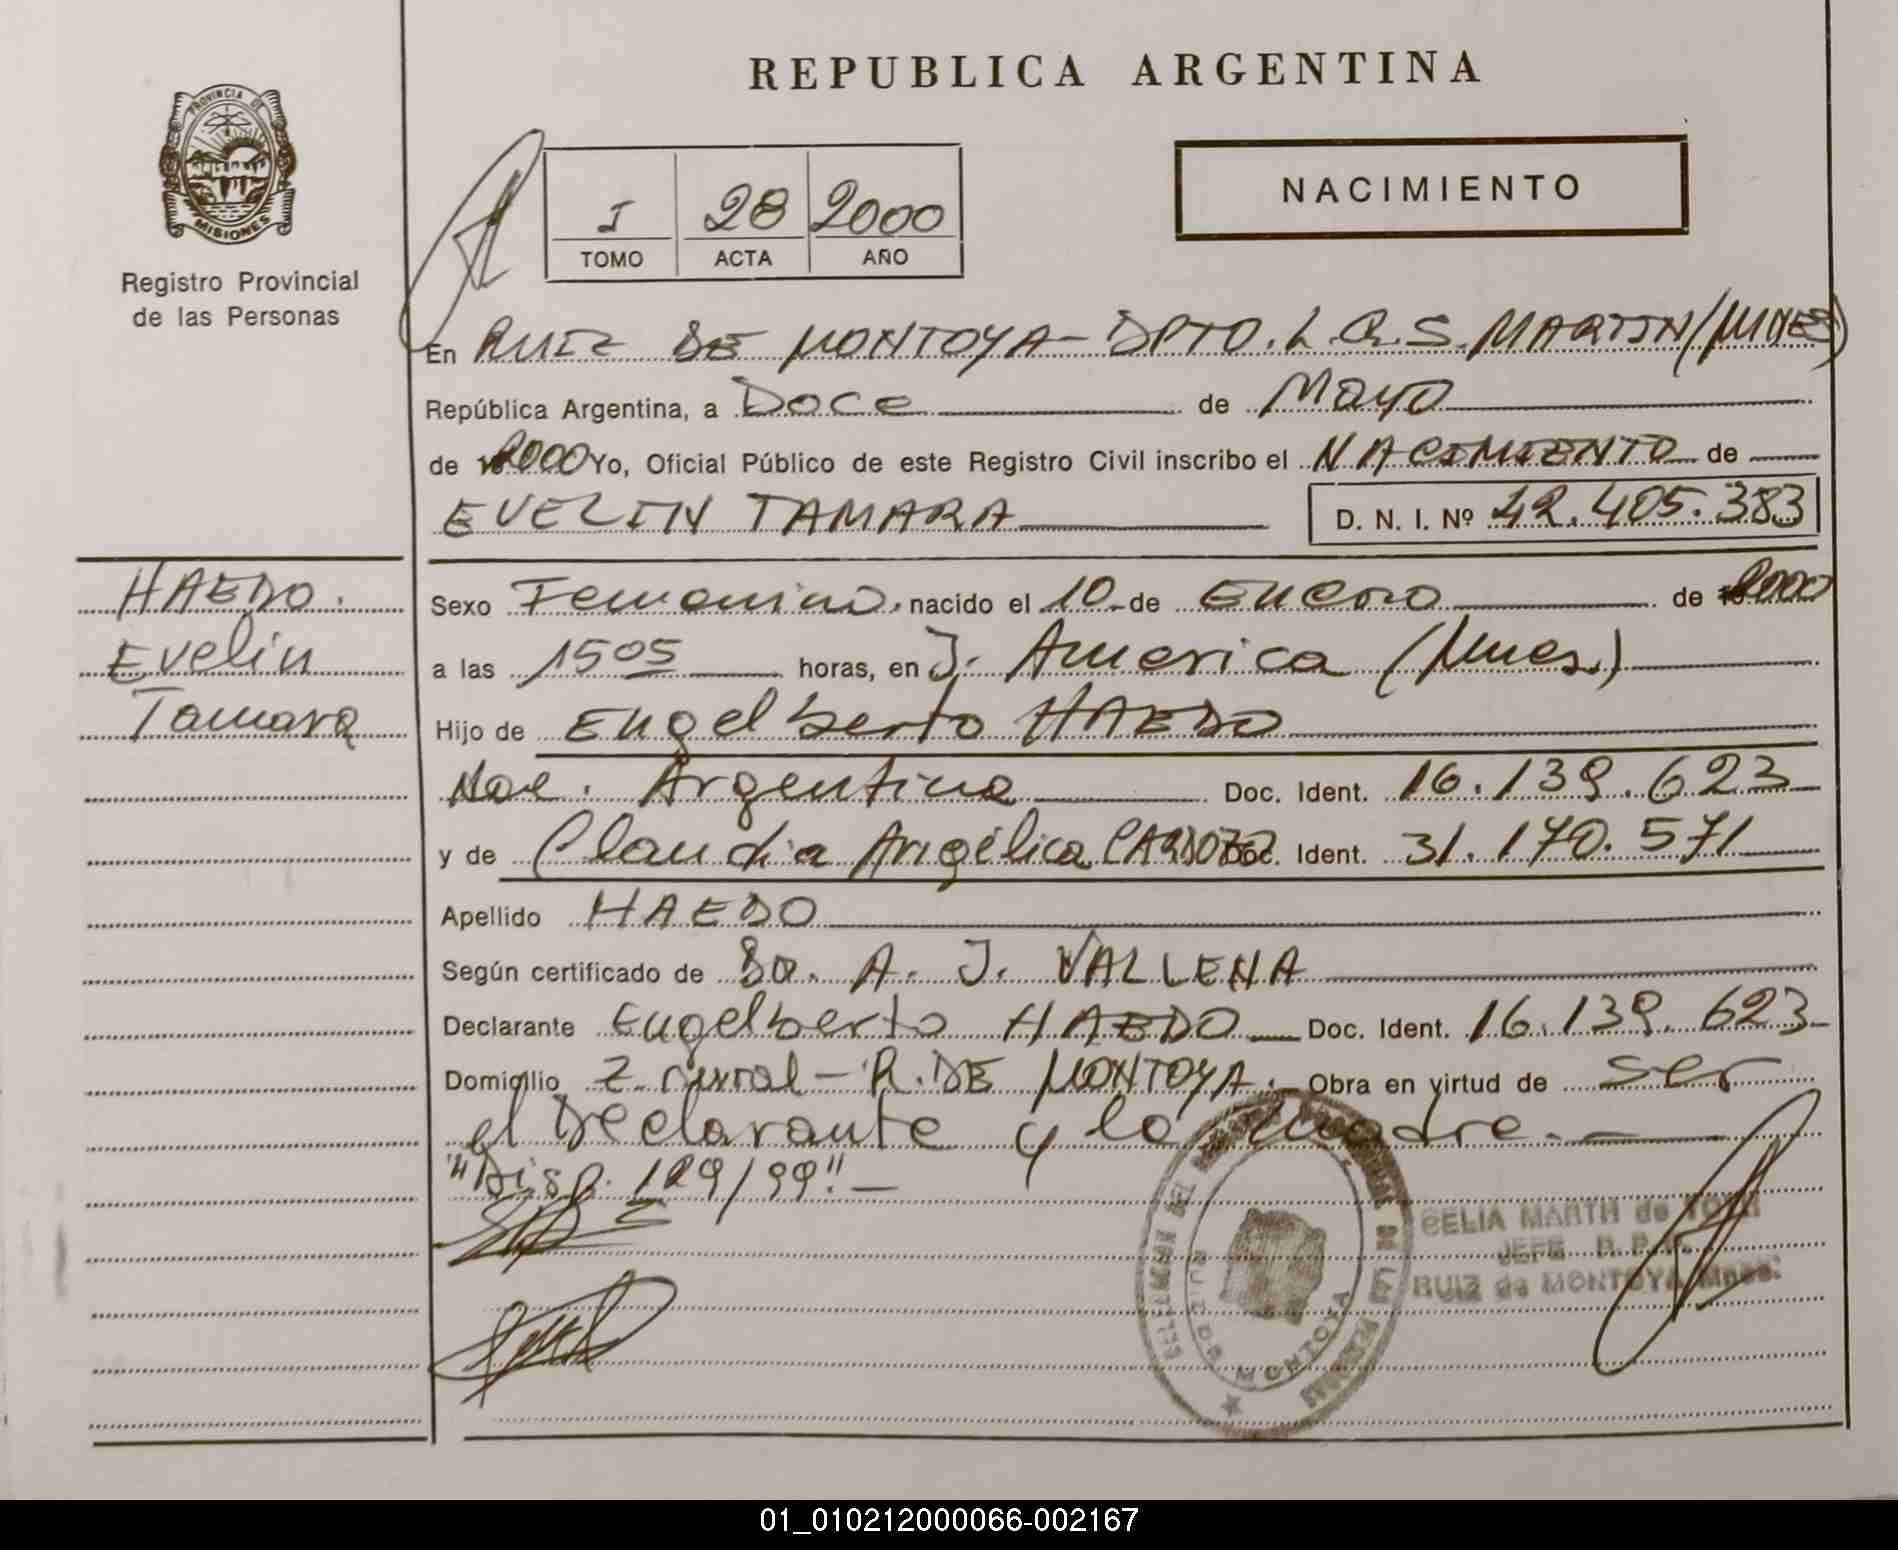 REPUBLICA ARGENTINA
PROVINCIA DE
MISIONES
Registro Provincial
de las Personas
I 28 2000
TOMO ACTA AÑO
NACIMIENTO
En RUIZ DE MONTOYA - DPTO. L.G.S. MARTIN (MNES)
República Argentina, a Doce de Mayo
de 2000 Yo, Oficial Público de este Registro Civil inscribo el NACIMIENTO de
EVELIN TAMARA D. N. I. Nº 42.405.383
HAEDO.
Evelin
Tamara
Sexo Femenino, nacido el 10 de Enero de 2000
a las 15 05 horas, en J. America (Mnes.)
Hijo de Engelberto HAEDO
Nac. Argentina Doc. Ident. 16.139.623
y de Claudia Angélica CARDOZO Doc. Ident. 31.170.571
Apellido HAEDO
Según certificado de A. J. VALLENA
Declarante Engelberto HAEDO Doc. Ident. 16.139.623
Domicilio Z. rural - R. DE MONTOYA. Obra en virtud de ser
el Declarante y la madre. -
"Disp. 129/99". -
CELIA MARTH de
JEFE R. P.
RUIZ de MONTOYA Mnes.
RUIZ DE MONTOYA
01_010212000066-002167